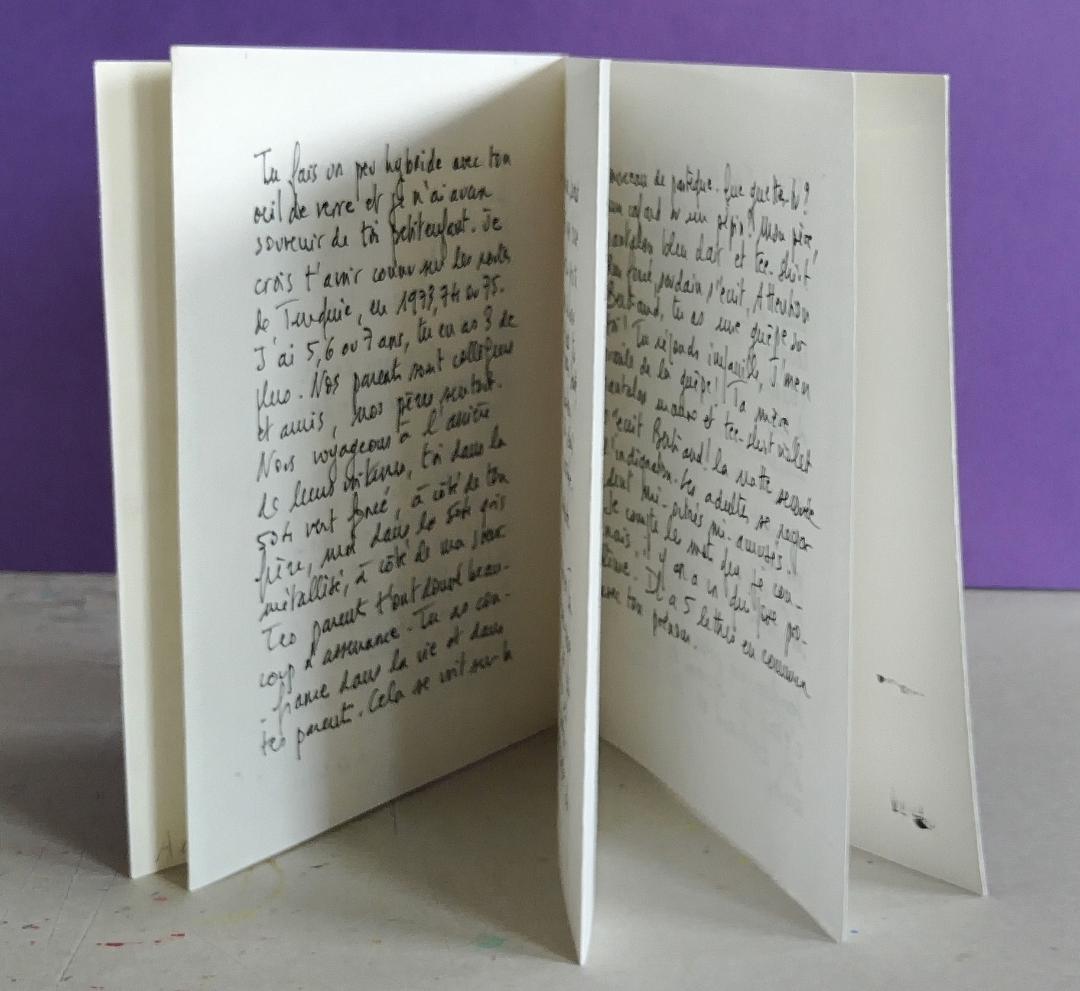 Tu fais un peu hybride avec ton
œil de verre et je n'ai aucun
souvenir de toi petit enfant. Je
crois t'avoir connu sur les routes
de Turquie, en 1973, 74 ou 75.
J'ai 5, 6 ou 7 ans, tu en as 3 de
plus. Nos parents sont collègues
et amis, nos pères surtout.
Nous voyageons à l'arrière
de leurs voitures, toi dans la
504 vert foncé, à côté de ton
frère, moi dans la 504 gris
métallisé, à côté de ma sœur
Tes parents t'ont donné beau-
coup d'assurance. Tu as con-
fiance dans la vie et dans
tes parents. Cela se voit sur la
morceau de pastèque. Que guettes-tu ?
un cafard ou un pépin ? Mon père,
pantalon bleu clair et tee-shirt
foncé, soudain s'écrit, Attention
Bertrand, tu as une guêpe sur
toi ! Tu réponds infaillible, J'men
de la guêpe ! Ta mère
pantalon et tee-shirt violet
s'écrit Bertrand ! la natte secouée
d'indignation. Les adultes se regar-
dent mi-outrés mi-amusés.
Je compte les mots que je con-
nais, il y en a un que
Il a 5 lettres en commun
avec ton prénom.